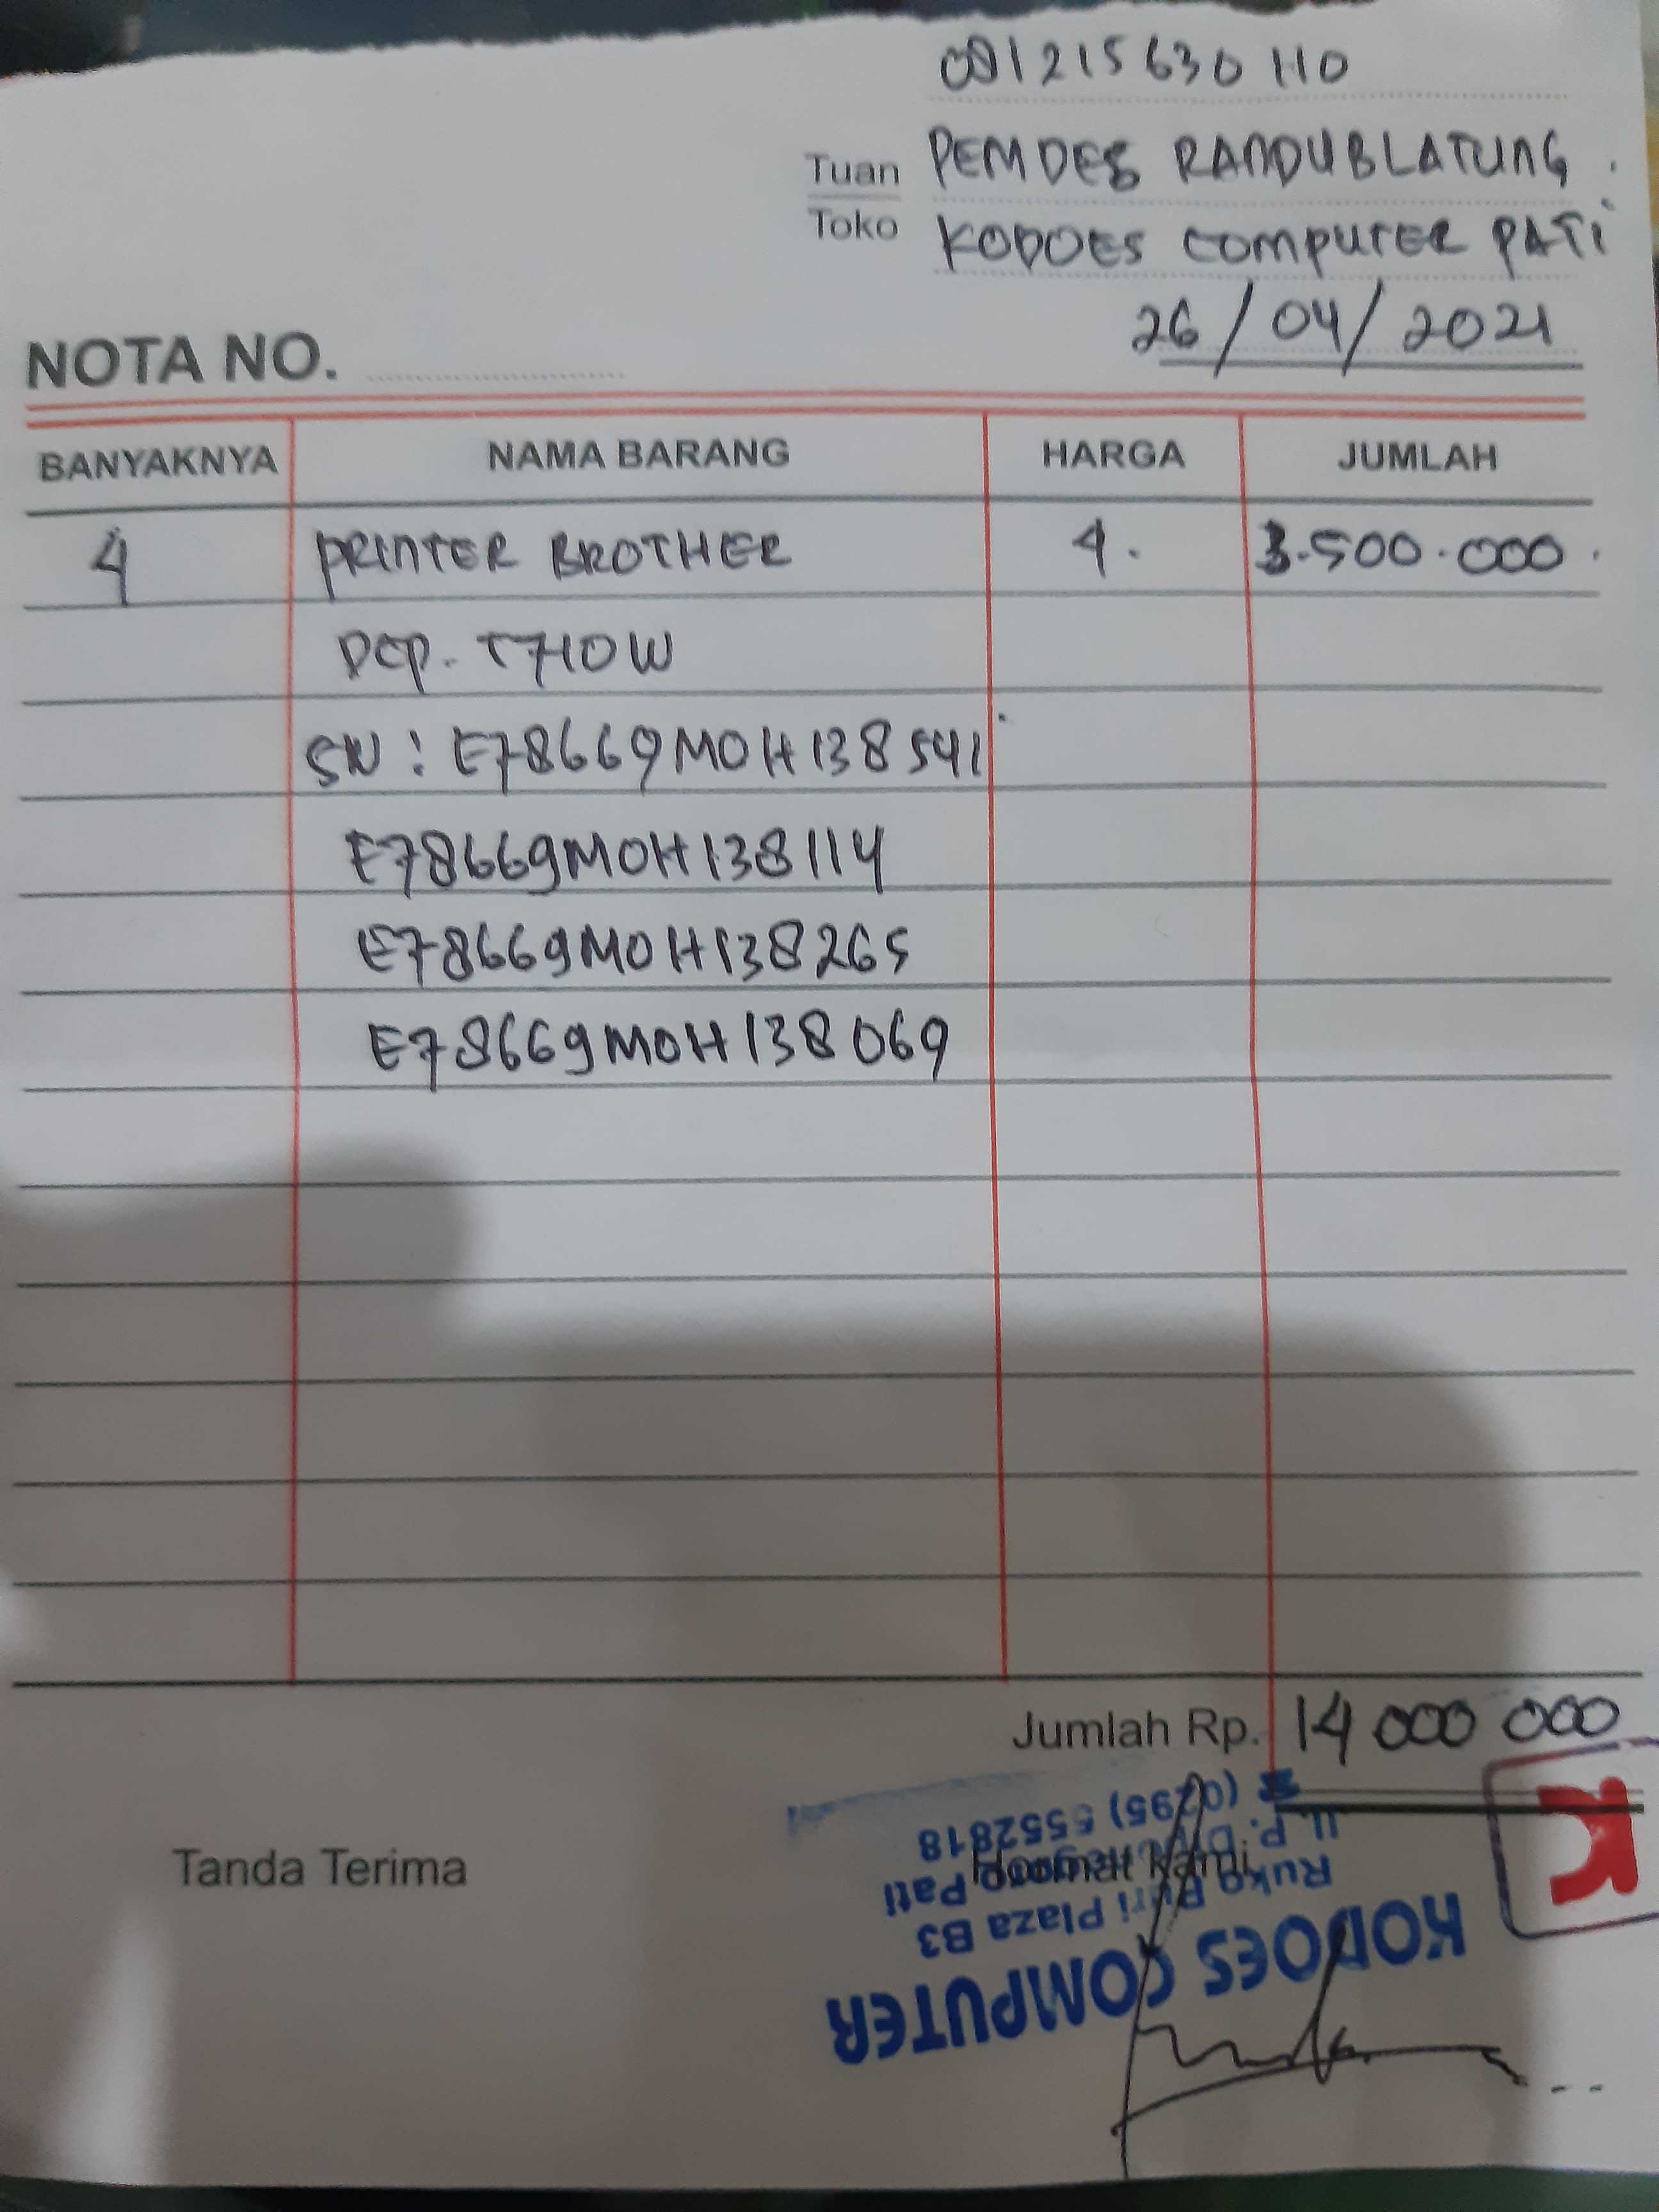 081215630110
Tuan PEMDES RANDUBLATUNG.
Toko KODOES COMPUTER PATI
26/04/2021
NOTA NO.
BANYAKNYA NAMA BARANG HARGA JUMLAH
4 PRINTER BROTHER 4. 3.500.000.
DCP. T710W
SN : E78669M0H138541
E78669M0H138114
E78669M0H138265
E78669M0H138069
Jumlah Rp. 14 000 000
Tanda Terima Hormat Kami,
KODOES COMPUTER
Ruko Puri Plaza B3
Jl. P. Diponegoro Pati
☎ (0295) 5552818